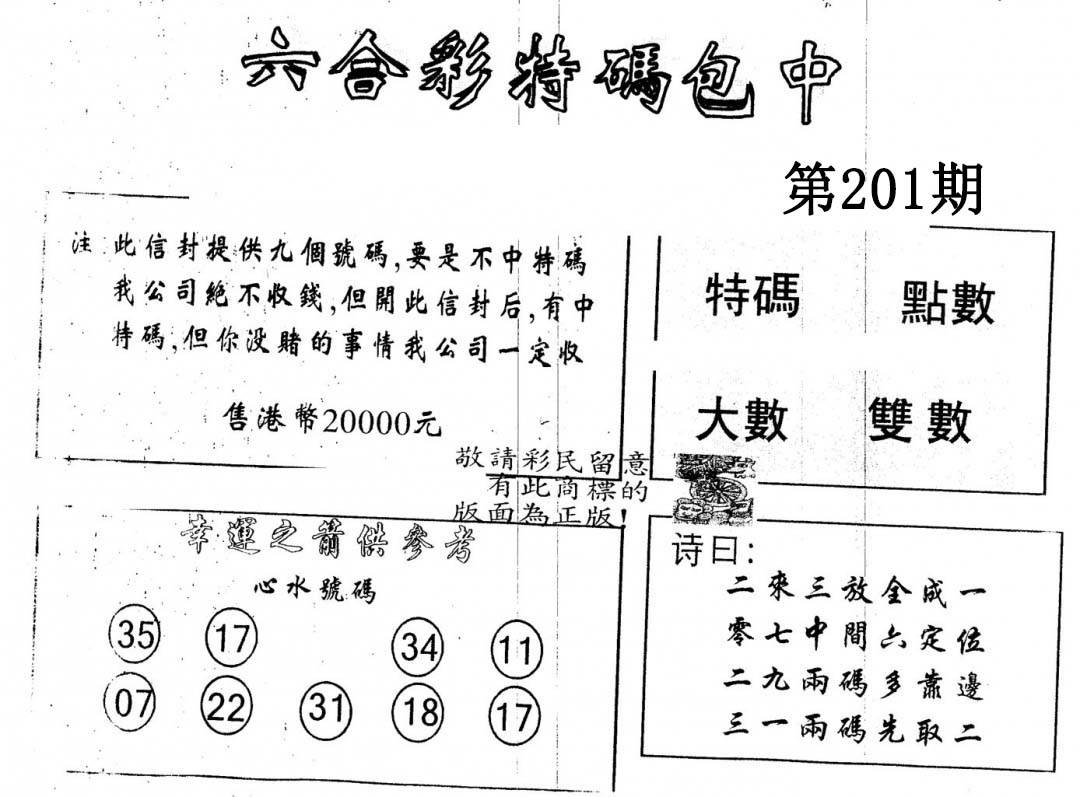 六合彩特碼包中
第201期
注 此信封提供九個號碼,要是不中特碼
我公司絕不收錢,但開此信封后,有中
特碼,但你没賭的事情我公司一定收
售港幣20000元
特碼 點數
大數 雙數
敬請彩民留意
有此商標的
版面為正版!
幸運之箭供參考
心水號碼
35 17 34 11
07 22 31 18 17
诗曰:
二來三放全成一
零七中間六定位
二九兩碼多靠邊
三一兩碼先取二